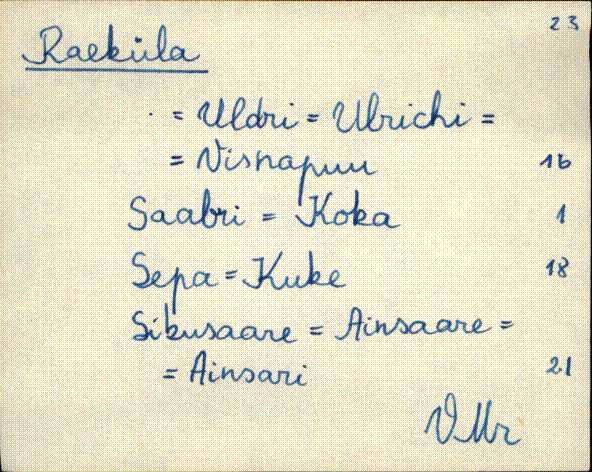 23
Raeküla
. = Uldri = Ulrichi =
= Visnapuu 16
Saabri = Koka 1
Sepa = Kuke 18
Sibusaare = Ainsaare =
= Ainsari 21
VMr